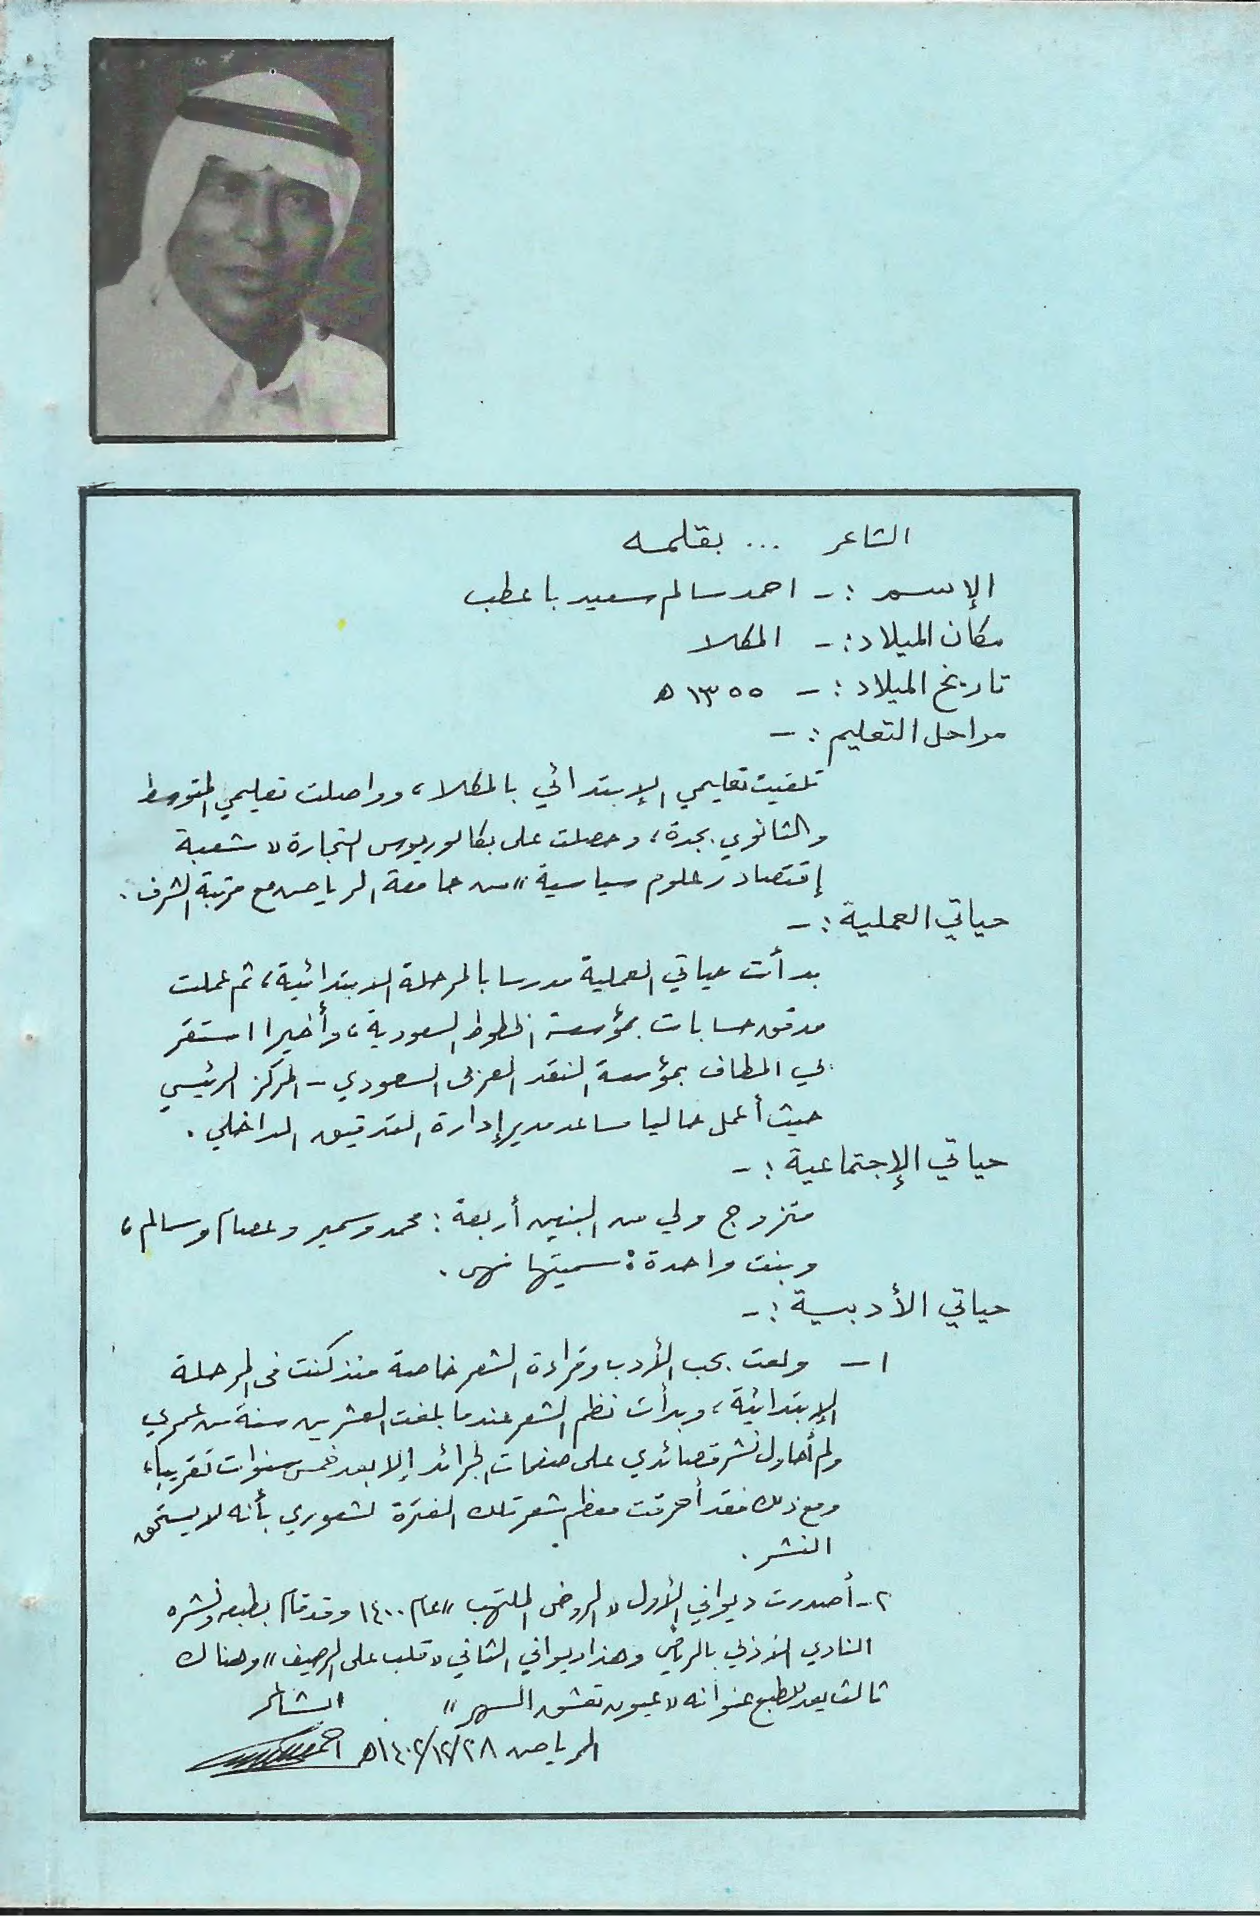 الشاعر ... بقلمه
الإسم :- احمد سالم سعيد باعطب
مكان الميلاد :- المكلا
تاريخ الميلاد :- ١٣٥٥ هـ
مراحل التعليم :-
تلقيت تعليمي الإبتدائي بالمكلا، وواصلت تعليمي المتوسط
والثانوي بجدة، وحصلت على بكالوريوس التجارة "شعبة
إقتصاد وعلوم سياسية" من جامعة الرياض مع مرتبة الشرف .
حياتي العملية :-
بدأت حياتي العملية مدرسا بالمرحلة الابتدائية، ثم عملت
مدقق حسابات بمؤسسة الخطوط السعودية، وأخيرا استقر
بي المطاف بمؤسسة النقد العربي السعودي - المركز الرئيسي
حيث أعمل حاليا مساعد مدير إدارة التدقيق الداخلي .
حياتي الإجتماعية :-
متزوج ولي من البنين أربعة : محمد وسمير وعصام وسالم،
وبنت واحدة : سميتها نهى .
حياتي الأدبية :-
١ - ولعت بحب الأدب وقراءة الشعر خاصة منذ كنت في المرحلة
الإبتدائية، وبدأت نظم الشعر عندما بلغت العشرين سنة من عمري
ولم أحاول نشر قصائدي على صفحات الجرائد إلا بعد خمس سنوات تقريبا،
ومع ذلك فقد أحرقت معظم شعر تلك الفترة لشعوري بأنه لا يستحق
النشر .
٢ - أصدرت ديواني الأول "الروض الملتهب" عام ١٤٠٠ وقد قام بطبعه ونشره
النادي الأدبي بالرياض وهذا ديواني الثاني "قلب على الرصيف" وهناك
ثالث يعد للطبع عنوانه "عيون تعشق السهر" الشاعر
الرياض ١٤٠٢/١٢/٢٨هـ احمد